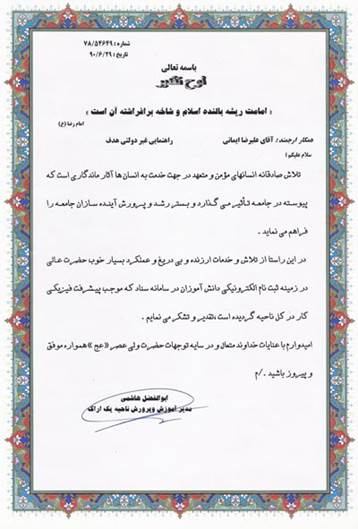 شماره : ۷۸/۵۴۶۴۹
تاریخ : ۹۰/۶/۲۹
باسمه تعالی
لوح تقدیر
« امامت ریشه بالنده اسلام و شاخه برافراشته آن است »
امام رضا (ع)
همکار ارجمند : آقای علیرضا ایمانی راهنمایی غیر دولتی هدف
سلام علیکم ؛
تلاش صادقانه انسانهای مؤمن و متعهد در جهت خدمت به انسان ها آثار ماندگاری است که
پیوسته در جامعه تأثیر می گذارد و بستر رشد و پرورش آینده سازان جامعه را
فراهم می نماید .
در این راستا از تلاش و خدمات ارزنده و بی دریغ و عملکرد بسیار خوب حضرت عالی
در زمینه ثبت نام الکترونیکی دانش آموزان در سامانه سناد که موجب پیشرفت فیزیکی
کار در کل ناحیه گردیده است ،تقدیر و تشکر می نمایم .
امیدوارم با عنایات خداوند متعال و در سایه توجهات حضرت ولی عصر «عج» همواره موفق
و پیروز باشید . /م
ابوالفضل هاشمی
مدیر آموزش وپرورش ناحیه یک اراک